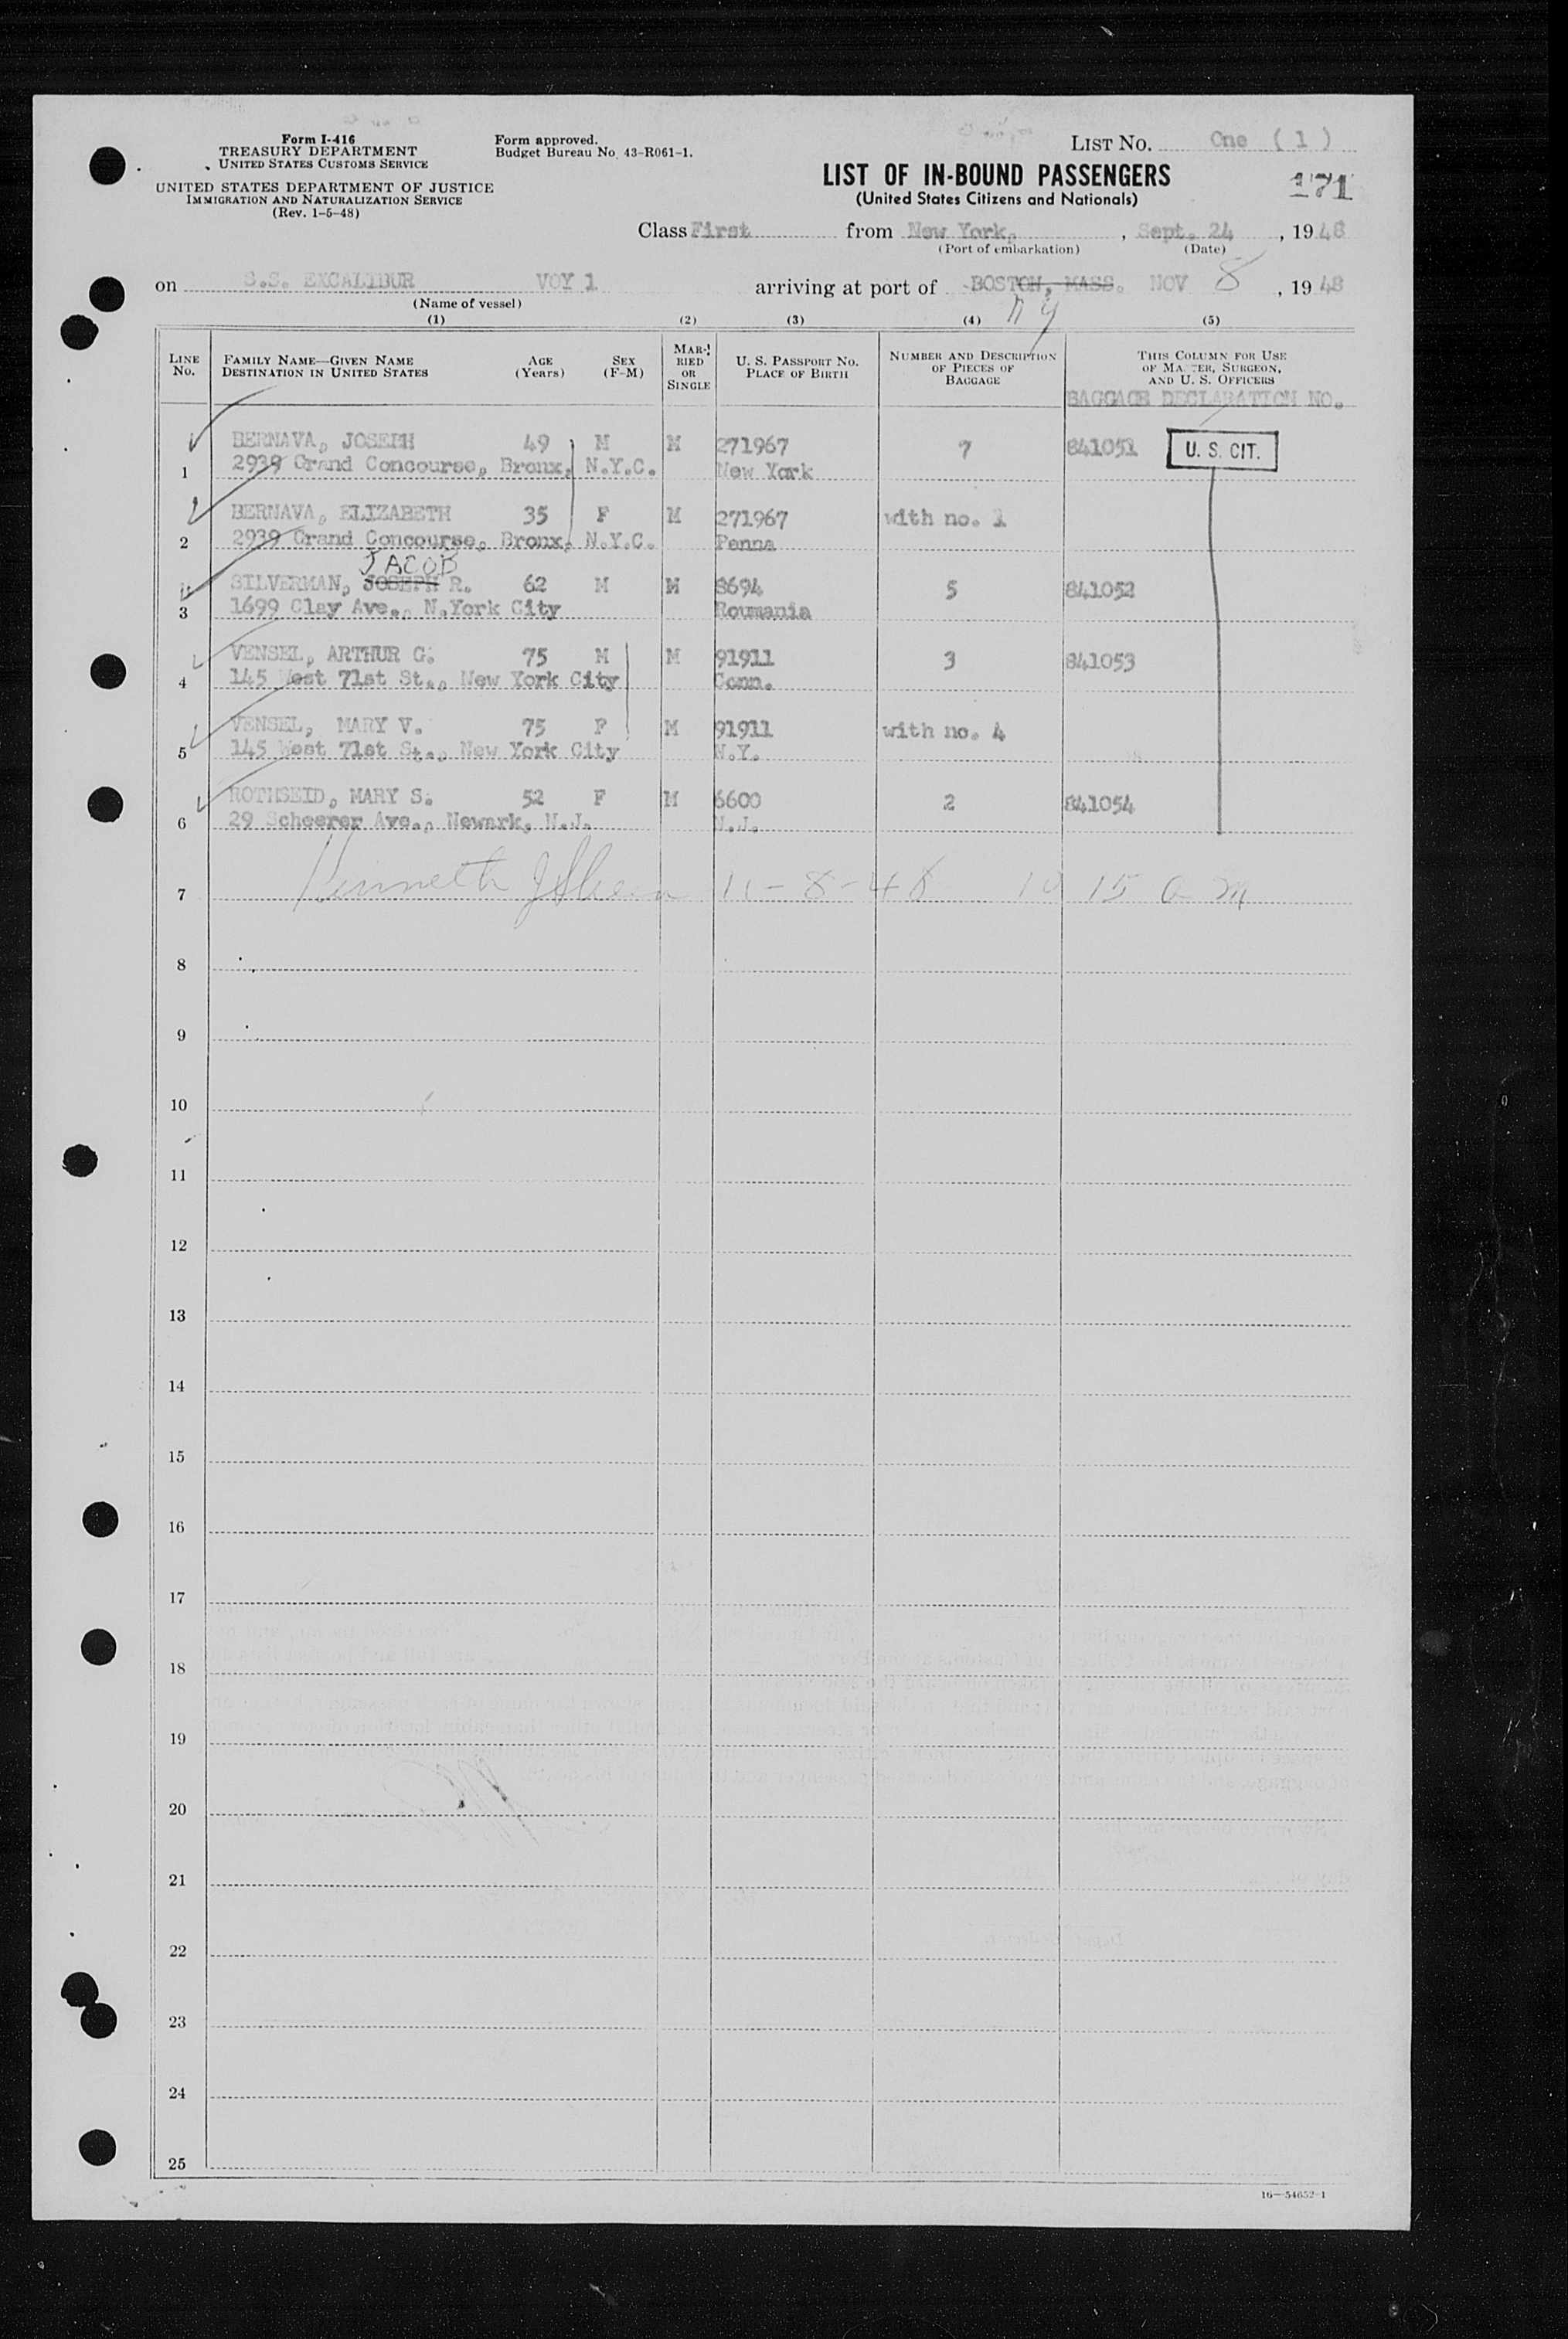 Form I-416
TREASURY DEPARTMENT
UNITED STATES CUSTOMS SERVICE
UNITED STATES DEPARTMENT OF JUSTICE
IMMIGRATION AND NATURALIZATION SERVICE
(Rev. 1-5-48)
Form approved.
Budget Bureau No. 43-R061-1.
LIST No. One ( 1 )
LIST OF IN-BOUND PASSENGERS
(United States Citizens and Nationals)
171
Class First from New York, , Sept. 24 , 1948
(Port of embarkation) (Date)
on S.S. EXCALIBUR VOY 1 arriving at port of BOSTON, MASS. NOV 8 , 1948
(Name of vessel)
N Y
(1) (2) (3) (4) (5)
LINE No.
FAMILY NAME—GIVEN NAME
DESTINATION IN UNITED STATES
AGE
(Years)
SEX
(F-M)
MARRIED OR SINGLE
U. S. PASSPORT NO.
PLACE OF BIRTH
NUMBER AND DESCRIPTION
OF PIECES OF
BAGGAGE
THIS COLUMN FOR USE
OF MASTER, SURGEON,
AND U. S. OFFICERS
BAGGAGE DECLARATION NO.
BERNAVA, JOSEPH 49 M M 271967 7 841051 U. S. CIT.
1 2939 Grand Concourse, Bronx, N.Y.C. New York
BERNAVA, ELIZABETH 35 F M 271967 with no. 1
2 2939 Grand Concourse, Bronx, N.Y.C. Penna
JACOB
SILVERMAN, JOSEPH R. 62 M M 8694 5 841052
3 1699 Clay Ave., N.York City Roumania
VENSEL, ARTHUR G. 75 M M 91911 3 841053
4 145 West 71st St., New York City Conn.
VENSEL, MARY V. 75 F M 91911 with no. 4
5 145 West 71st St., New York City N.Y.
ROTHSEID, MARY S. 52 F M 6600 2 841054
6 29 Scheerer Ave., Newark, N.J. N.J.
7 Kenneth 11-8-48 10 15 a m
8
9
10
11
12
13
14
15
16
17
18
19
20
21
22
23
24
25
16—54652-1